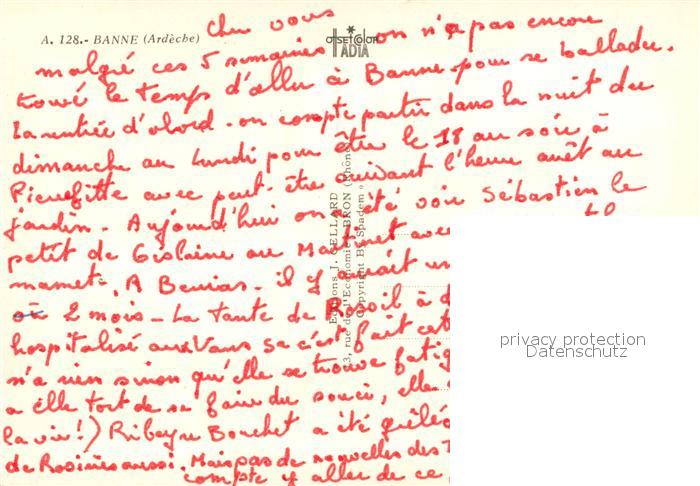 A. 128.- BANNE (Ardèche)
OFFSETCOLOR
ADIA
Cher vous
on n'a pas encore
malgré ces 5 semaines
trouvé le temps d'aller à Banne pour se ballader.
La rentrée d'abord - on compte partir dans la nuit du
dimanche au Lundi pour être le 18 au soir à
Pierrefitte avec peut-être suivant l'heure arrêt au
jardin - Aujourd'hui on a été voir Sébastien le
petit de Gislaine au Martinet avec
mamet. A Berrias - il y aurait un
où 2 mois - La tante de Rosoil à
hospitalisé aux Vans sa c'est fait cet
n'a rien sinon qu'elle se trouve fatig
a elle tort de se faire du souci, elle
la vie!) Ribeyre Bouchet a été grêlé
de Rosières aussi. Mais pas de nouvelles des
compte y aller de ce
Editions J. CELLARD
3, rue de l'Economie - BRON (Rhône)
Copyright By Spadem
privacy protection
Datenschutz